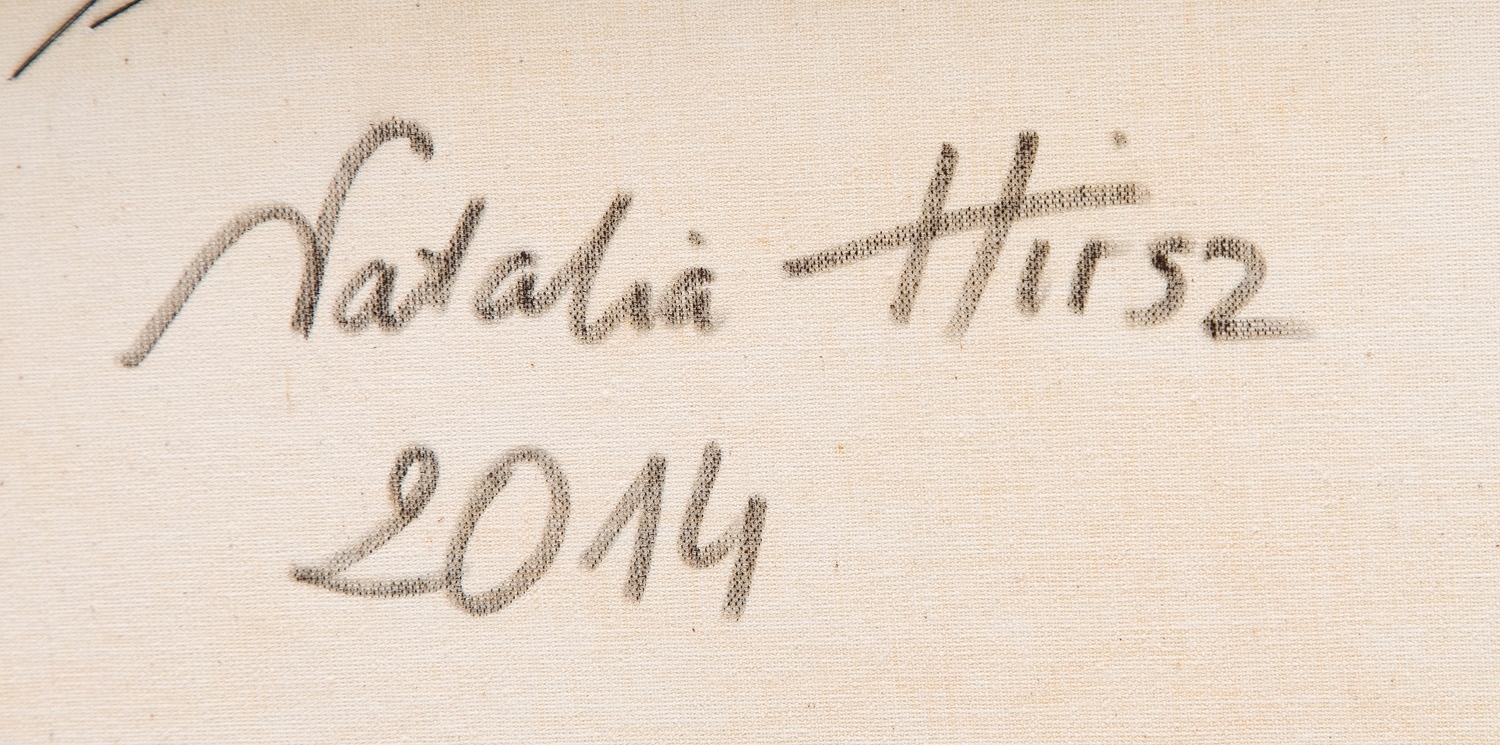 Natalia Hirsz
2014